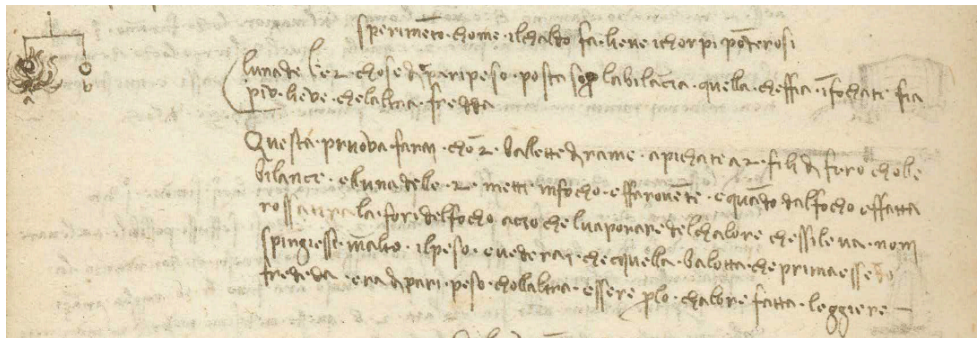 sperimēto chome ilchaldo fa lieve ichorpi pōterosi
luna de le 2 chose dj pari peso posta sop labilācia quella cheffia īfochate fia
piv lieve chelaltra fredda
Questa pruova faraj chō 2 ballette dj rame apichate a 2 fili dj ferro cholle
bilance elluna delle 2 metti infocho effa rovēte e quādo dalfocho effatta
rossa tira la fori delfocho acco che lvaporare del chalore chessileva nom
spingiesse inalto ilpeso e vederai checquella balotta che prima essēdo
fredda era dj pari peso chollaltra essere plo chalore fatta leggiere
a b